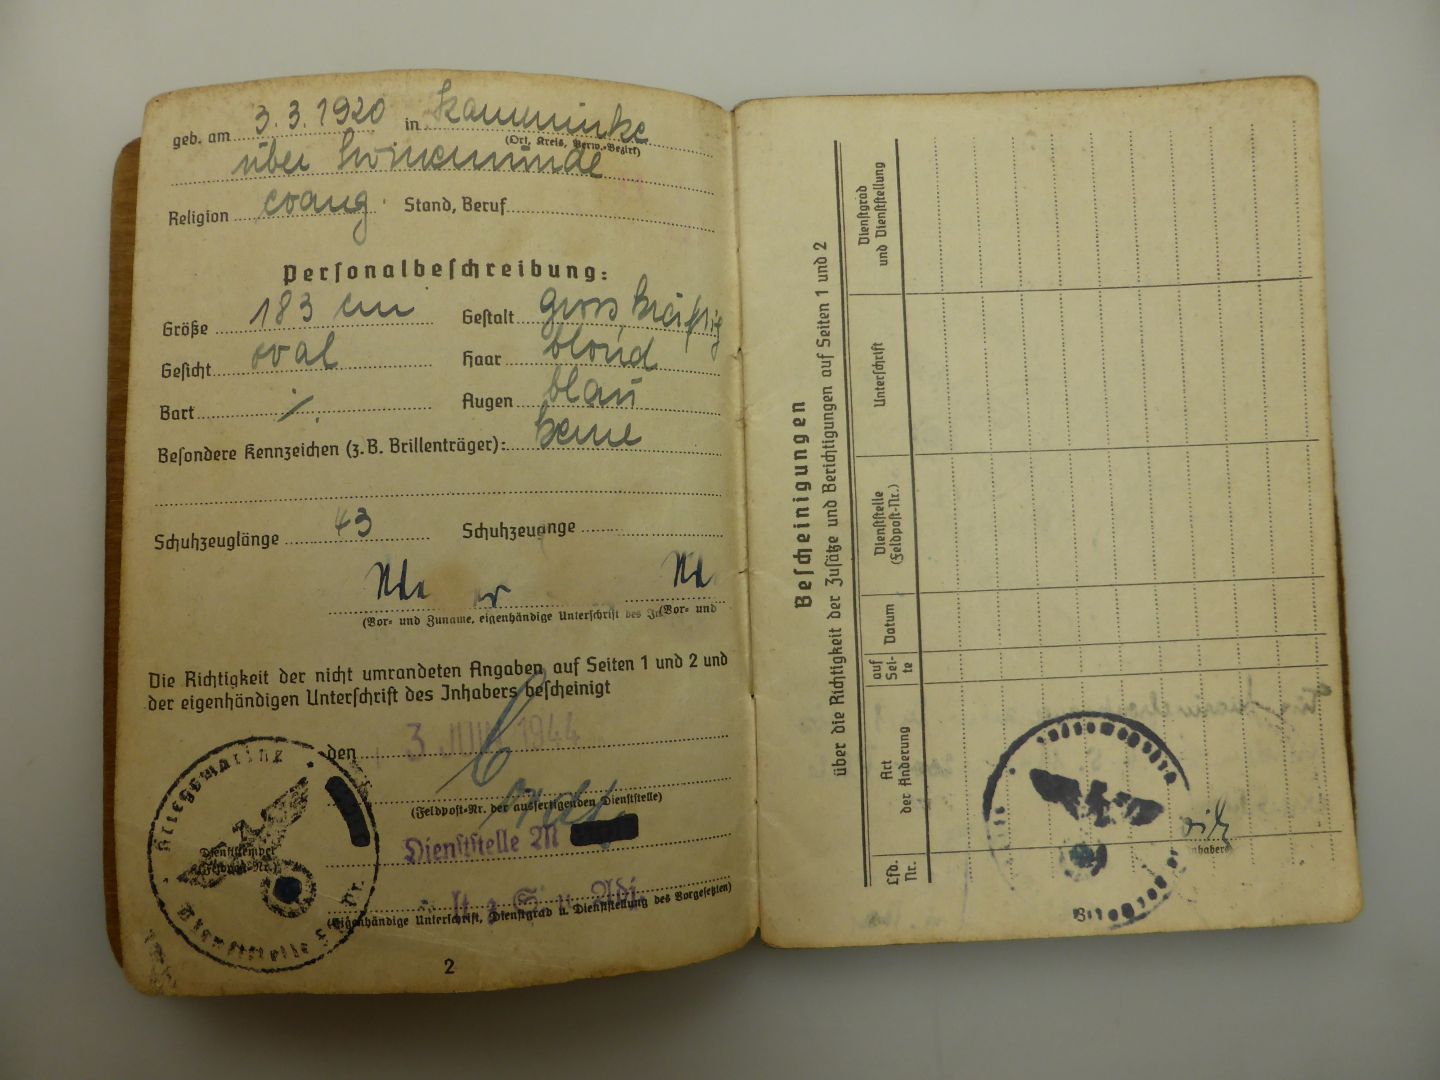 geb. am 3.3.1920 in Kamminke
(Ort, Kreis, Verw.-Bezirk)
über Swinemünde
Religion evang. Stand, Beruf
Personalbeschreibung:
Größe 183 cm Gestalt gross, kräftig
Gesicht oval Haar blond
Bart ./. Augen blau
Besondere Kennzeichen (z.B. Brillenträger): keine
Schuhzeuglänge 43 Schuhzeugnge
(Vor- und Zuname, eigenhändige Unterschrift des In(Vor- und
Die Richtigkeit der nicht umrandeten Angaben auf Seiten 1 und 2 und
der eigenhändigen Unterschrift des Inhabers bescheinigt
den 3. JUNI 1944
(Feldpost-Nr. der ausfertigenden Dienststelle)
Dienststelle M
Lt. z. S. u. Adj.
(Eigenhändige Unterschrift, Dienstgrad u. Dienststellung des Vorgesetzten)
Kriegsmarine
Dienststempel
(Feldpost-Nr.)
Nr.
2
Bescheinigungen
über die Richtigkeit der Zusätze und Berichtigungen auf Seiten 1 und 2
Lfd. Nr.
Art der Änderung
auf Sei-te
Datum
Dienststelle (Feldpost-Nr.)
Unterschrift
Dienstgrad und Dienststellung
nhabers